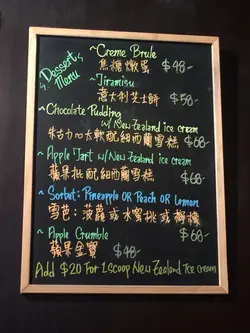 Dessert Menu
~Creme Brule
焦糖燉蛋 $48-
~Tiramisu
意大利芝士餅 $58-
~Chocolate Pudding
w/ New Zealand ice cream
朱古力心太軟配紐西蘭雪糕 $68-
~Apple Tart w/ New Zealand ice cream
蘋果批配紐西蘭雪糕 $68-
~Sorbet: Pineapple OR Peach OR Lemon
雪芭: 菠蘿 或 水蜜桃 或 檸檬
~Apple Crumble $60-
蘋果金寶 $48-
Add $20 For 1 Scoop New Zealand Ice cream